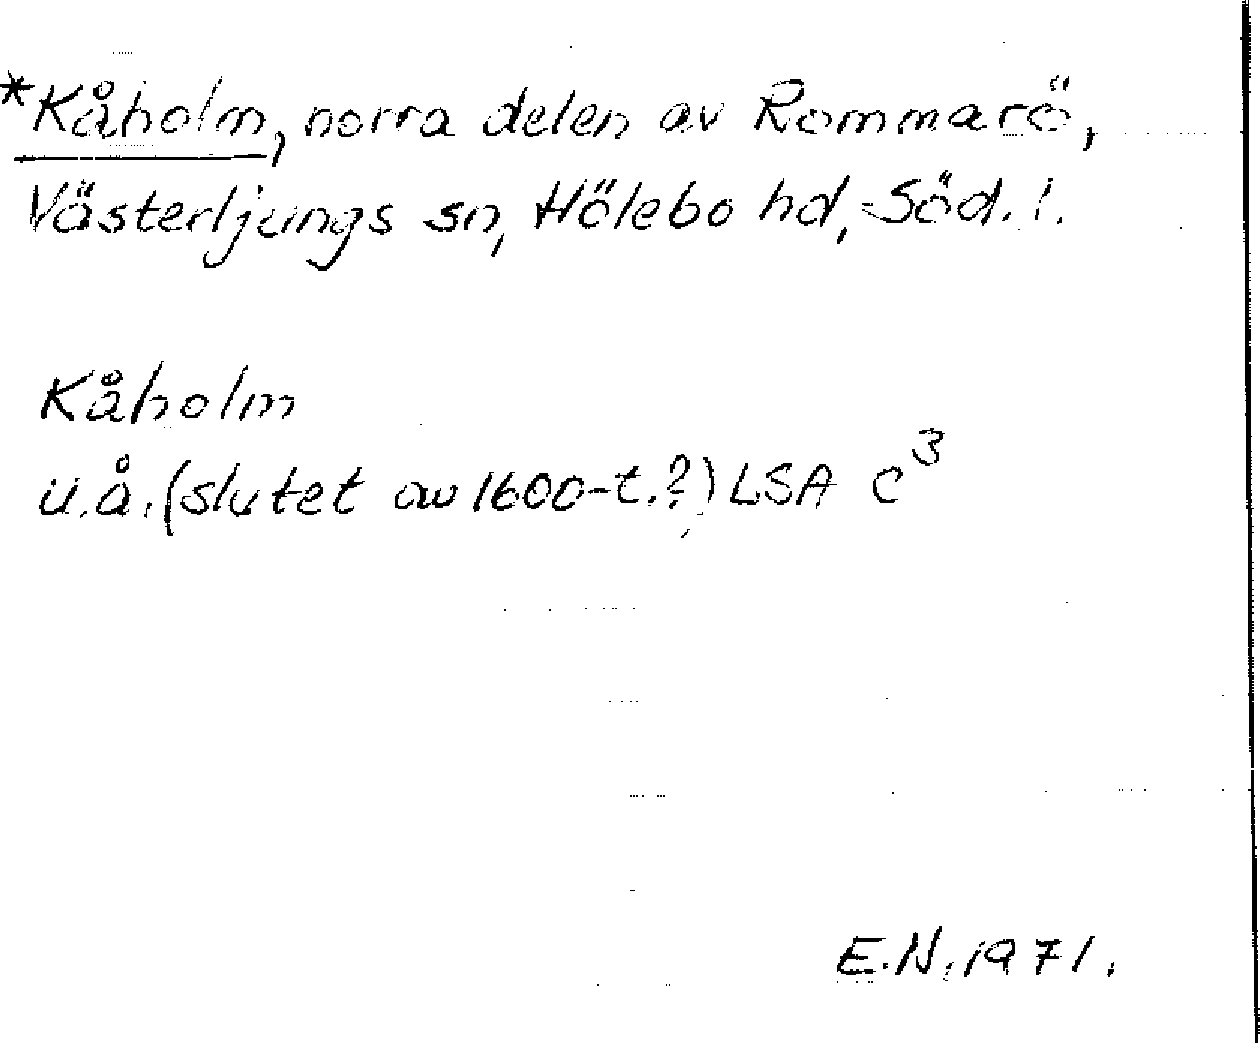 *Kåholm, norra delen av Rommarö,
Västerljungs sn, Hölebo hd, Söd. l.
Kåholm
u.å. (slutet av 1600-t.?) LSA C³
E.N. 1971.